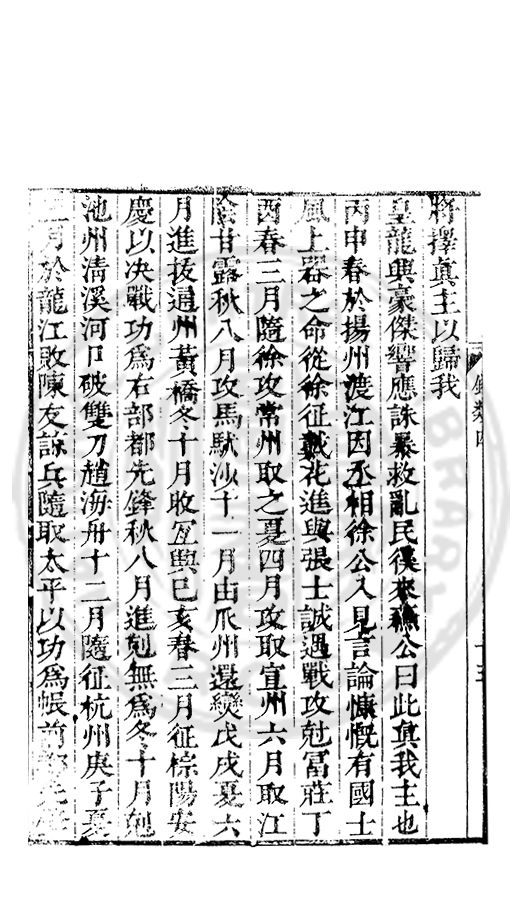 將擇真主以歸我
皇龍興豪傑響應誅暴救亂民徯來蘇公曰此真我主也
丙申春於揚州渡江因丞相徐公入見言論慷慨有國士
風上器之命從徐征戴花進與張士誠遇戰攻尅冨莊丁
酉春三月隨徐攻常州取之夏四月攻取宣州六月取江
陰甘露秋八月攻馬馱沙十一月由瓜州還變戊戌夏六
月進拔通州黃橋冬十月收宜興己亥春三月征樅陽安
慶以决戰功爲右部都先鋒秋八月進剋無爲冬十月剋
池州清溪河口破雙刀趙海舟十二月隨征杭州庚子夏
五月於龍江敗陳友諒兵隨取太平以功爲帳前都先鋒
類四
十五